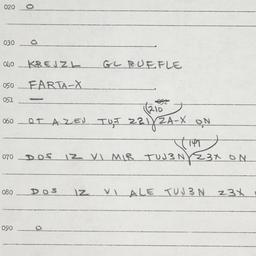 020 O
030 O
040 KREJZL GL RUFFLE
050 FARTA-X
051 —
(210
060 OT A ZEJ TUJ 221 ZA-X ON
(149
070 DOS IZ VI MIR TUJ3N Z3X ON
080 DOS IZ VI ALE TUJ3N Z3X
090 O